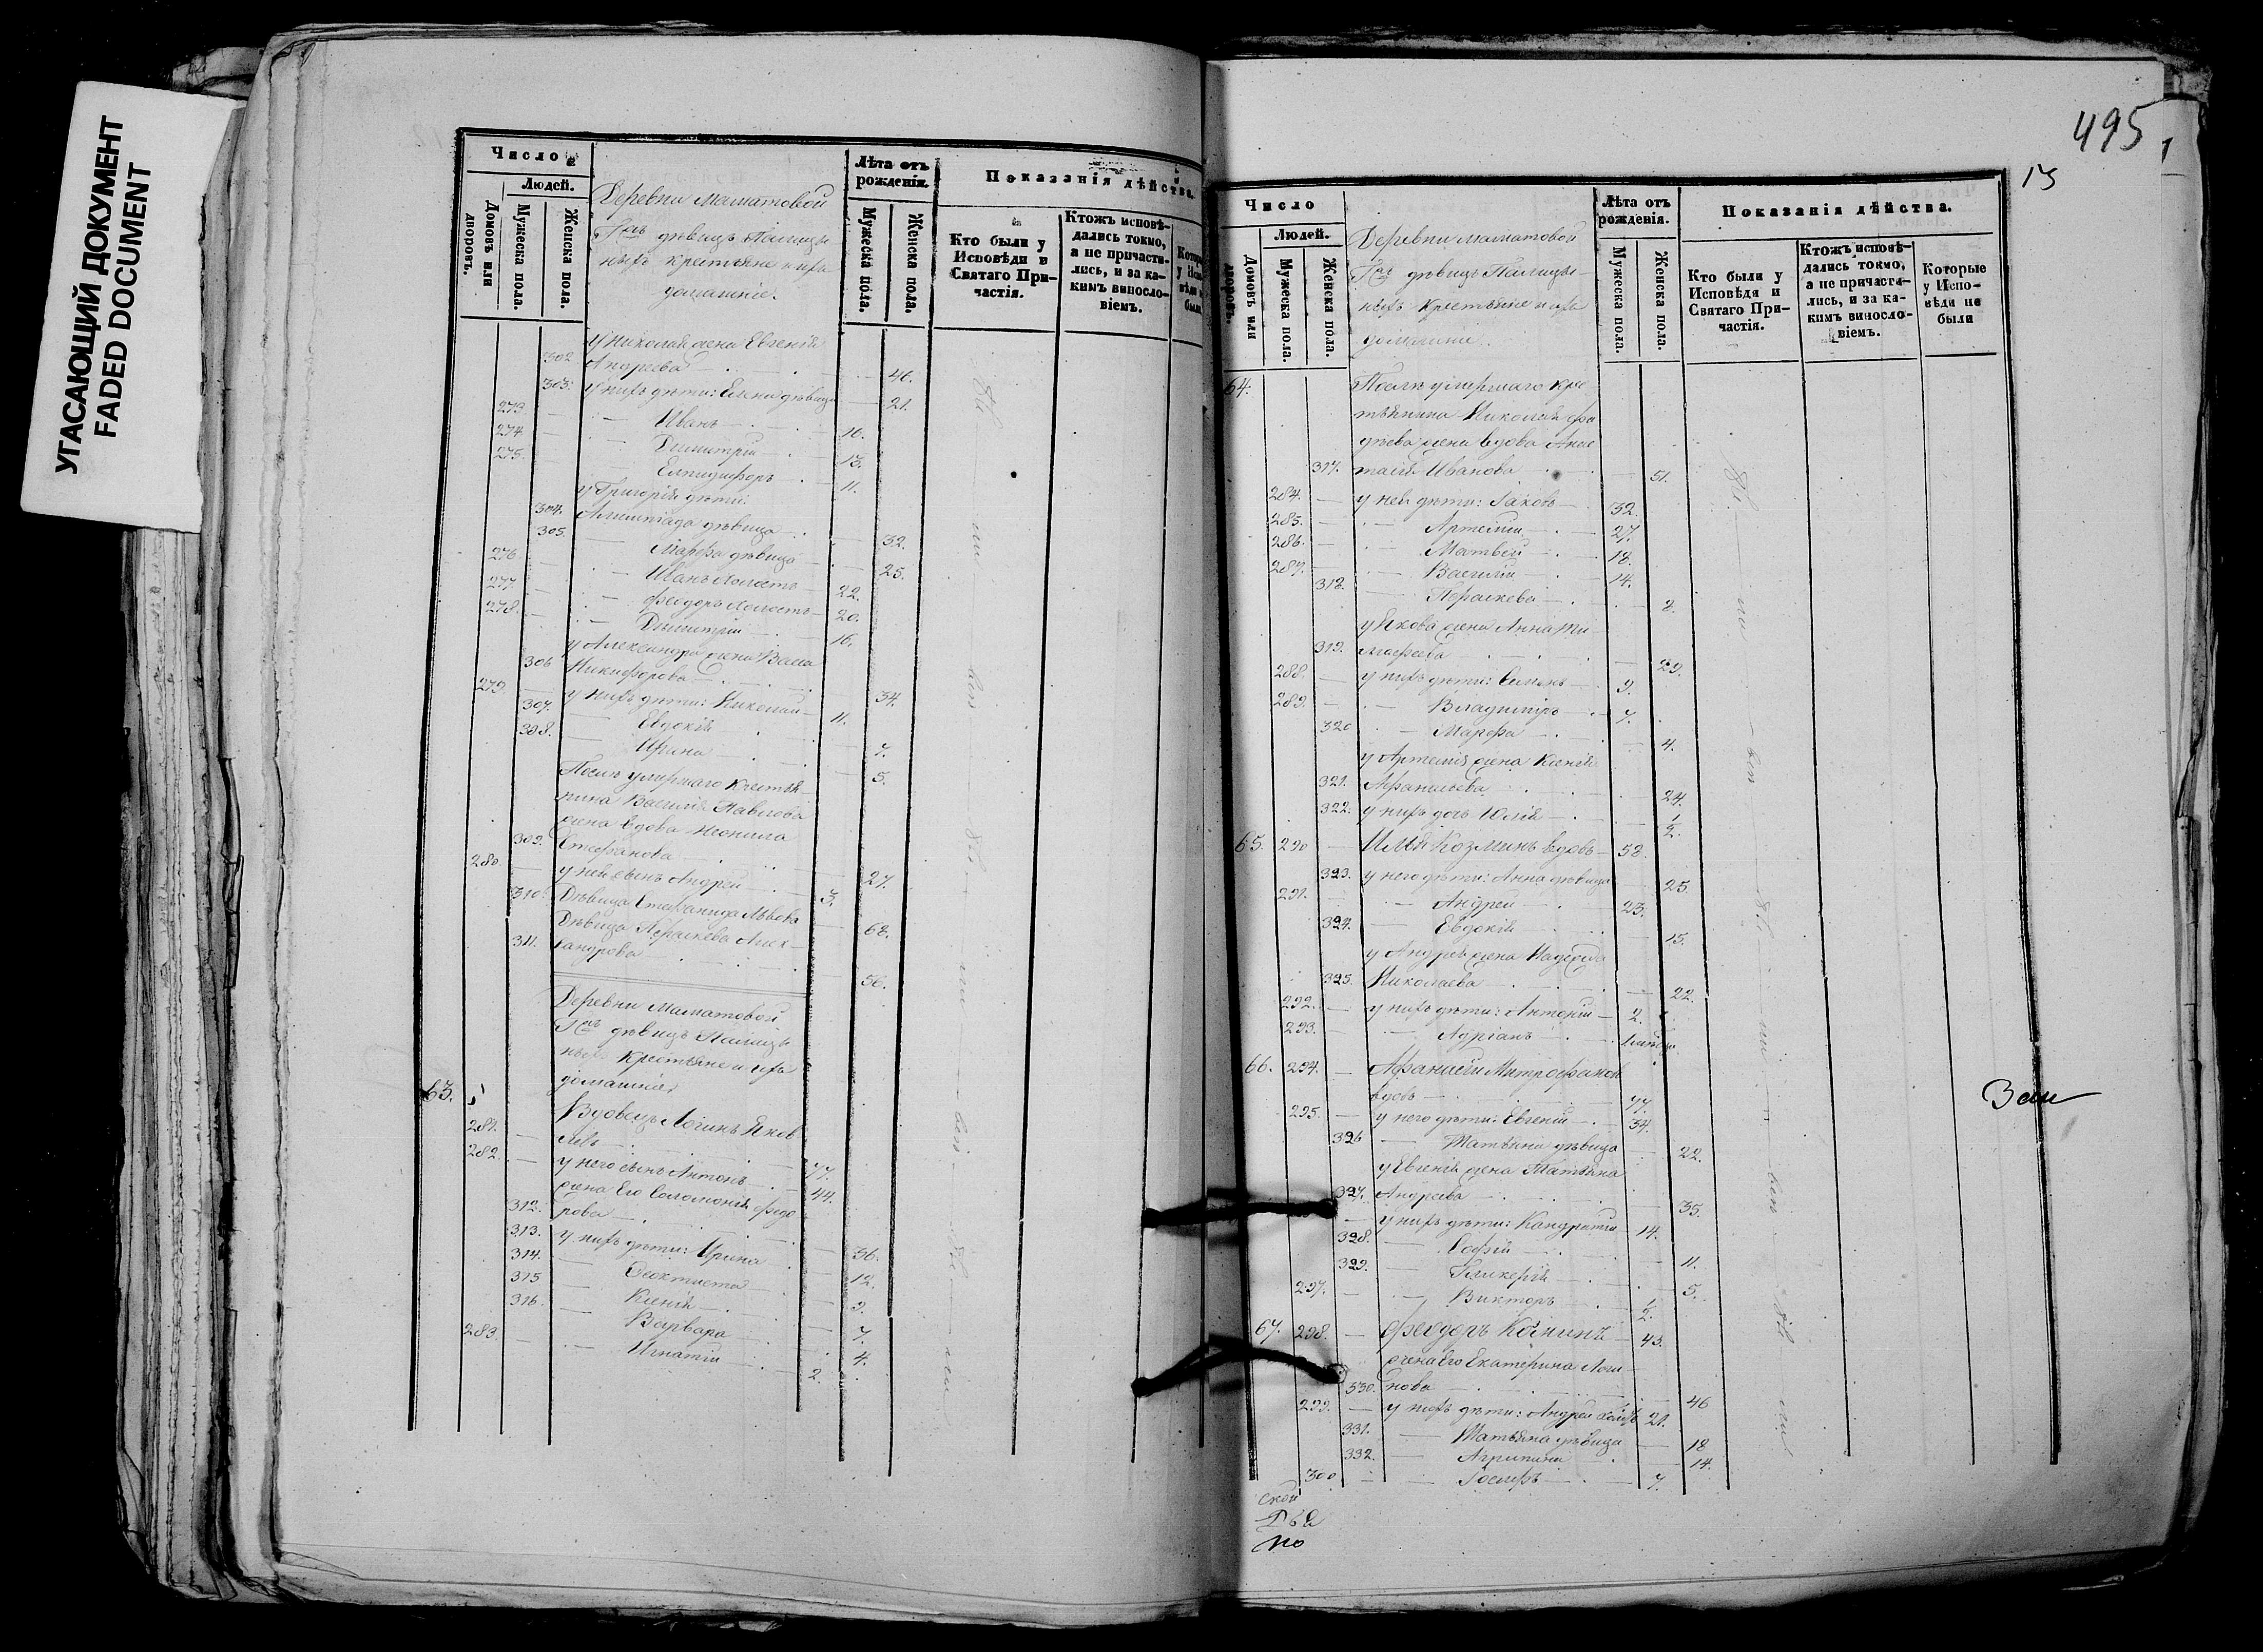 УГАСАЮЩИЙ ДОКУМЕНТ
FADED DOCUMENT
Число
Людей.
Домовъ или дворовъ.
Мужеска пола.
Женска пола.
Деревни Маматовой
Гжъ дѣвицъ Палицы
ныхъ крестьяне и ихъ
домашніе.
Лѣта отъ рожденія.
Мужеска пола.
Женска пола.
Показанія дѣйства.
Кто были у Исповѣди и Святаго При-частія.
Ктожъ исповѣ-дались токмо, а не причасти-лись, и за ка-кимъ винослo-віемъ.
у Николая жена Евгенія
302 Андреева 46.
303. у нихъ дѣти: Елена дѣвица 21.
273 Иванъ 16.
274 Димитрій 13.
275. Елпидифоръ 11.
у Григорія дѣти:
304. Олимпіада дѣвица 32.
305. Марфа дѣвица 25.
276 Иванъ холостъ 22.
277 Феодоръ холостъ 20.
278. Димитрій 16.
у Александра жена Васса
306 Никифорова 34.
279. у нихъ дѣти: Николай 11.
307. Евдокія 7.
308. Ирина 5.
Послѣ умершаго крестья
нина Василія Павлова
жена вдова Неонила
309. Стефанова 27.
280. у ней сынъ Андрей 3.
310. Дѣвица Стефанида Львова 68.
Дѣвица Параскева Алек
311. сандрова 56.
Деревни Маматовой
Гжъ дѣвицъ Палицы
ныхъ крестьяне и ихъ
домашніе,
63.
Вдовецъ Логинъ Яков
281. левъ 77.
282. у него сынъ Антонъ 44.
жена Его Соломонія Федо
312. рова 36.
313. у нихъ дѣти: Ирина 12.
314. Феоктиста 9.
315 Ксенія 7.
316. Варвара 4.
283. Игнатій 2.
495
13
Число
Людей.
Домовъ или дворовъ.
Мужеска пола.
Женска пола.
Деревни Маматовой
Гжъ дѣвицъ Палицы
ныхъ крестьяне и ихъ
домашніе.
Лѣта отъ рожденія.
Мужеска пола.
Женска пола.
Показанія дѣйства.
Кто были у Исповѣди и Святаго При-частія.
Ктожъ исповѣ-дались токмо, а не причасти-лись, и за ка-кимъ винослo-віемъ.
Которые у Испо-вѣди не были
64. Послѣ умершаго кре
стьянина Николая Фа
дѣева жена вдова Анас
317. тасія Иванова 51.
284. у ней дѣти: Іаковъ 32.
285. Артемій 27.
286. Матвей 18.
287. Василій 14.
318. Параскева 8.
у Якова жена Анна Ти
319. мофеева 29.
288. у нихъ дѣти: Семенъ 9.
289. Владиміръ 7.
320 Марфа 4.
у Артемія жена Ксенія
321. Афанасьева 24.
322. у нихъ дочь Юлія 1/2.
65. 290 Илья Козминъ вдовъ 58.
323. у него дѣти: Анна дѣвица 25.
291. Андрей 23.
324. Евдокія 15.
у Андрея жена Надежда
325. Николаева 22.
292. у нихъ дѣти: Антоній 2.
293. Адріанъ
66. 294. Афанасій Митрофановъ
вдовъ 77.
295. у него дѣти: Евгеній 34.
326 Татьяна дѣвица 22.
у Евгенія жена Татьяна
327. Андреева 35.
у нихъ дѣти: Кондратій 14.
328. Софія 11.
329. Гликерія 5.
297. Викторъ 1/2.
67. 298. Феодоръ Козминъ 43.
жена Его Екатерина Логи
330. нова 46
299. у нихъ дѣти: Андрей холостъ 21.
331. Татьяна дѣвица 18
332. Агрипина 14.
300 Іосифъ 7.
ской
по